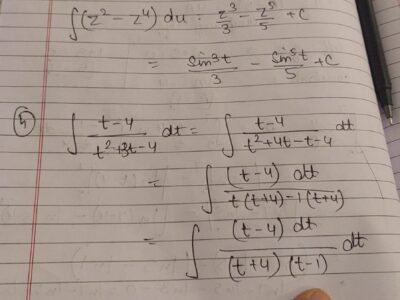 ∫(z² − z⁴) du . z³/3 − z⁵/5 + c
= sin³t/3 − sin⁵t/5 + c
④ ∫ (t−4)/(t²+3t−4) dt = ∫ (t−4)/(t²+4t−t−4) dt
= ∫ (t−4) dt/(t(t+4)−1(t+4))
= ∫ (t−4) dt/((t+4)(t−1)) dt